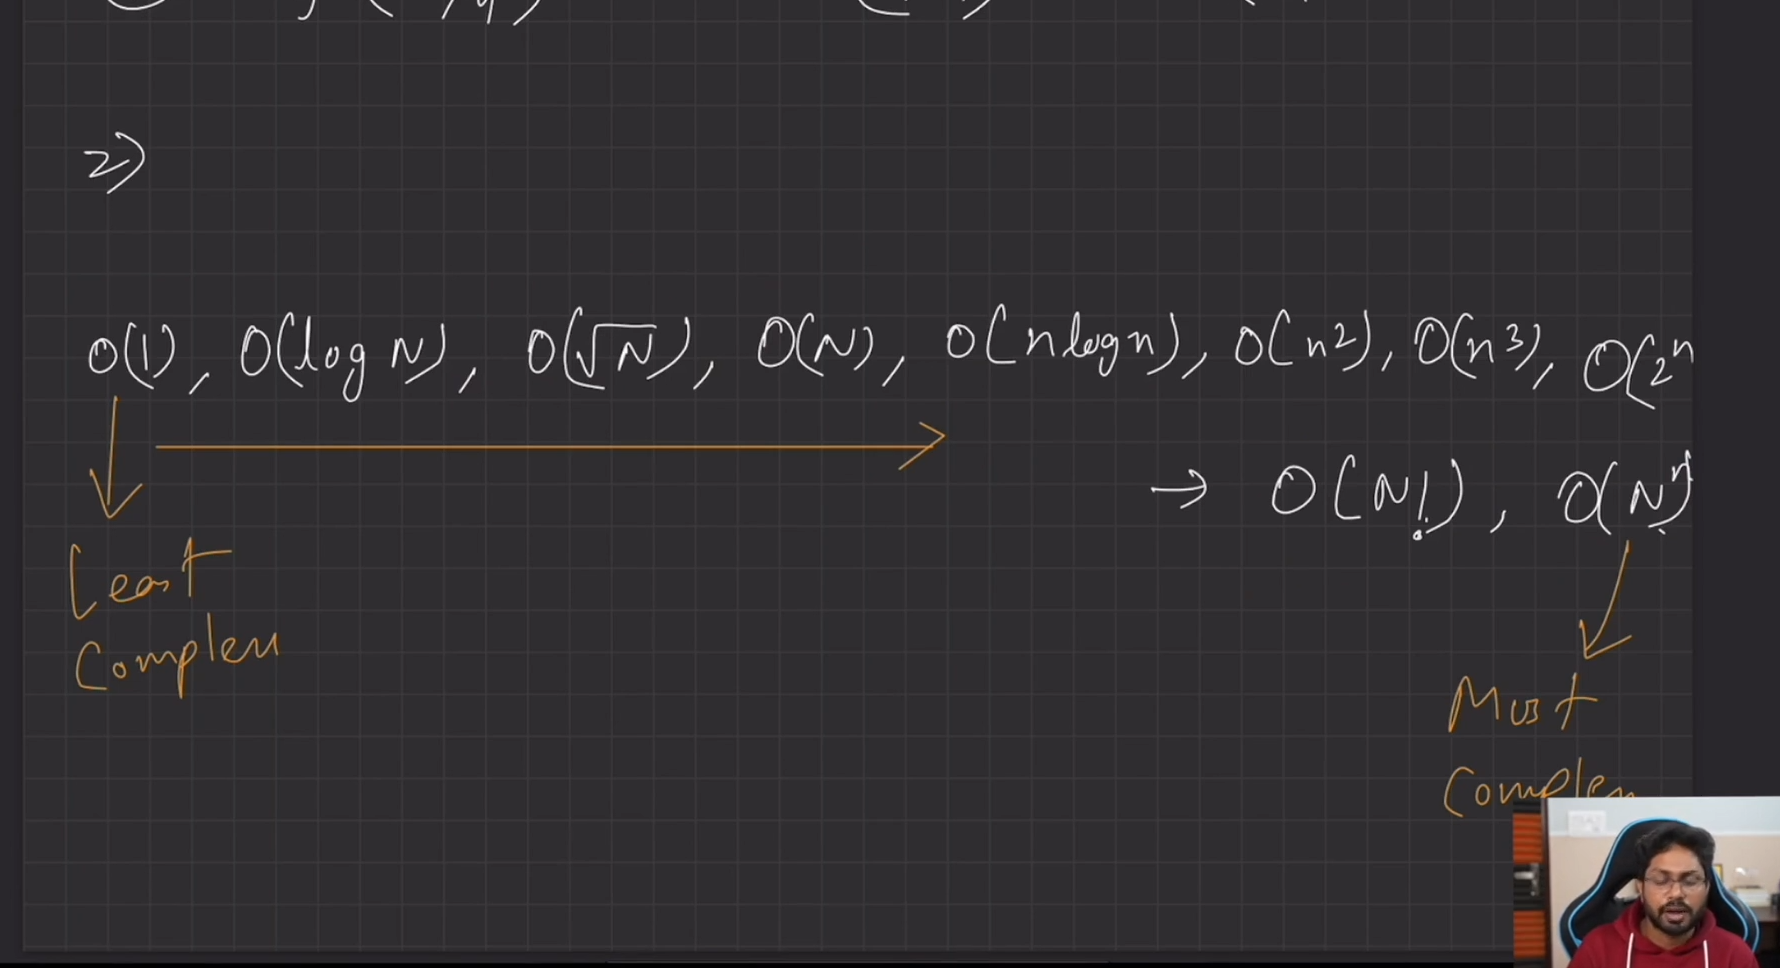 2)
O(1), O(log N), O(√N), O(N), O(n log n), O(n2), O(n3), O(2^n
→ O(N!), O(N^n)
Least
Complex
Most
Complex